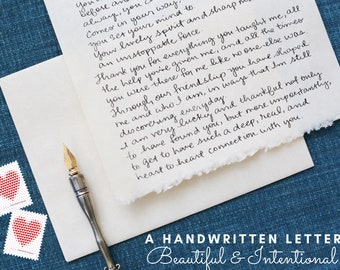 before an
always, you c
comes in your way.
you set your mind to.
Your lovely spirit and sharp m
an unstoppable force.
Thank you for everything you taught me, all
the help you've given me, and all the times
you were there for me like no one else was.
Through our friendship you have shaped
me and who I am, in ways that I'm still
discovering everyday.
I am very lucky and thankful not only
to have found you, but more importantly,
to get to have such a deep, real, and
heart to heart connection with you.
A HANDWRITTEN LETTER
Beautiful & Intentional